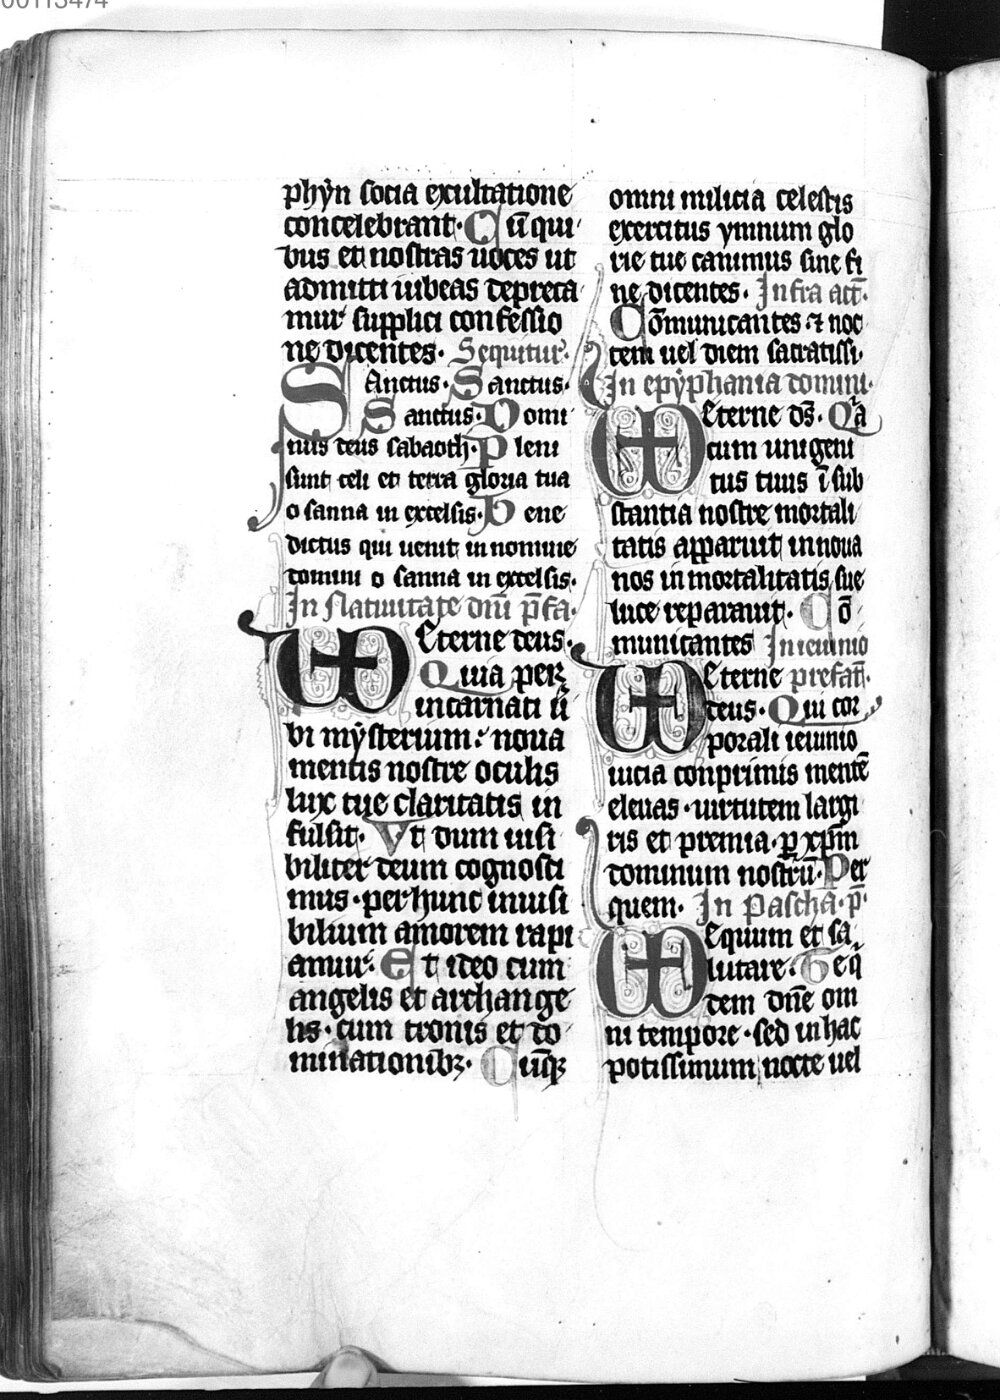 00113474
phẏn socia exultatione
concelebrant· Cū qui
bus et nostras uoces ut
admitti iubeas depreca
mur supplici confessio
ne dicentes· Sequitur·
Sanctus· Sanctus·
Sanctus· Domi
nus deus sabaoth· Pleni
sunt celi et terra gloria tua
o sanna in excelsis· Bene
dictus qui uenit in nomine
domini o sanna in excelsis·
In Natiuitate dnī p̄fa·
Eterne deus·
Quia per
incarnati ū
bi mẏsterium: noua
mentis nostre oculis
lux tue claritatis in
fulsit· Vt dum uisi
biliter deum cognosci
mus· per hunc inuisi
bilium amorem rapi
amur· Et ideo cum
angelis et archange
lis· cum tronis et do
minationibꝫ· Cūqꝫ
omni milicia celestis
exercitus ymnum glo
rie tue canimus sine fi
ne dicentes· Infra act̄·
Cōmunicantes ⁊ noc
tem uel diem sacratissi·
In epẏphania domini·
Eterne ds̄· Qa
cum unigeni
tus tuus ī sub
stantia nostre mortali
tatis apparuit in noua
nos inmortalitatis sue
luce reparauit· Cō
municantes In ieiunio
Eterne prefat̄·
deus· Qui cor
porali ieiunio
uicia conprimis mentē
eleuas· uirtutem largi
ris et premia· ꝑ xp̄m
dominum nostrū· Per
quem· In Pascha· p̄·
Equum et sa
lutare· Te q̄
dem dn̄e om
ni tempore· sed in hac
potissimum nocte uel